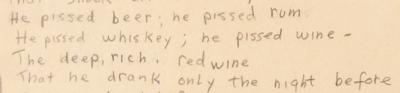 He pissed beer; he pissed rum.
He pissed whiskey; he pissed wine –
The deep, rich, red wine
That he drank only the night before